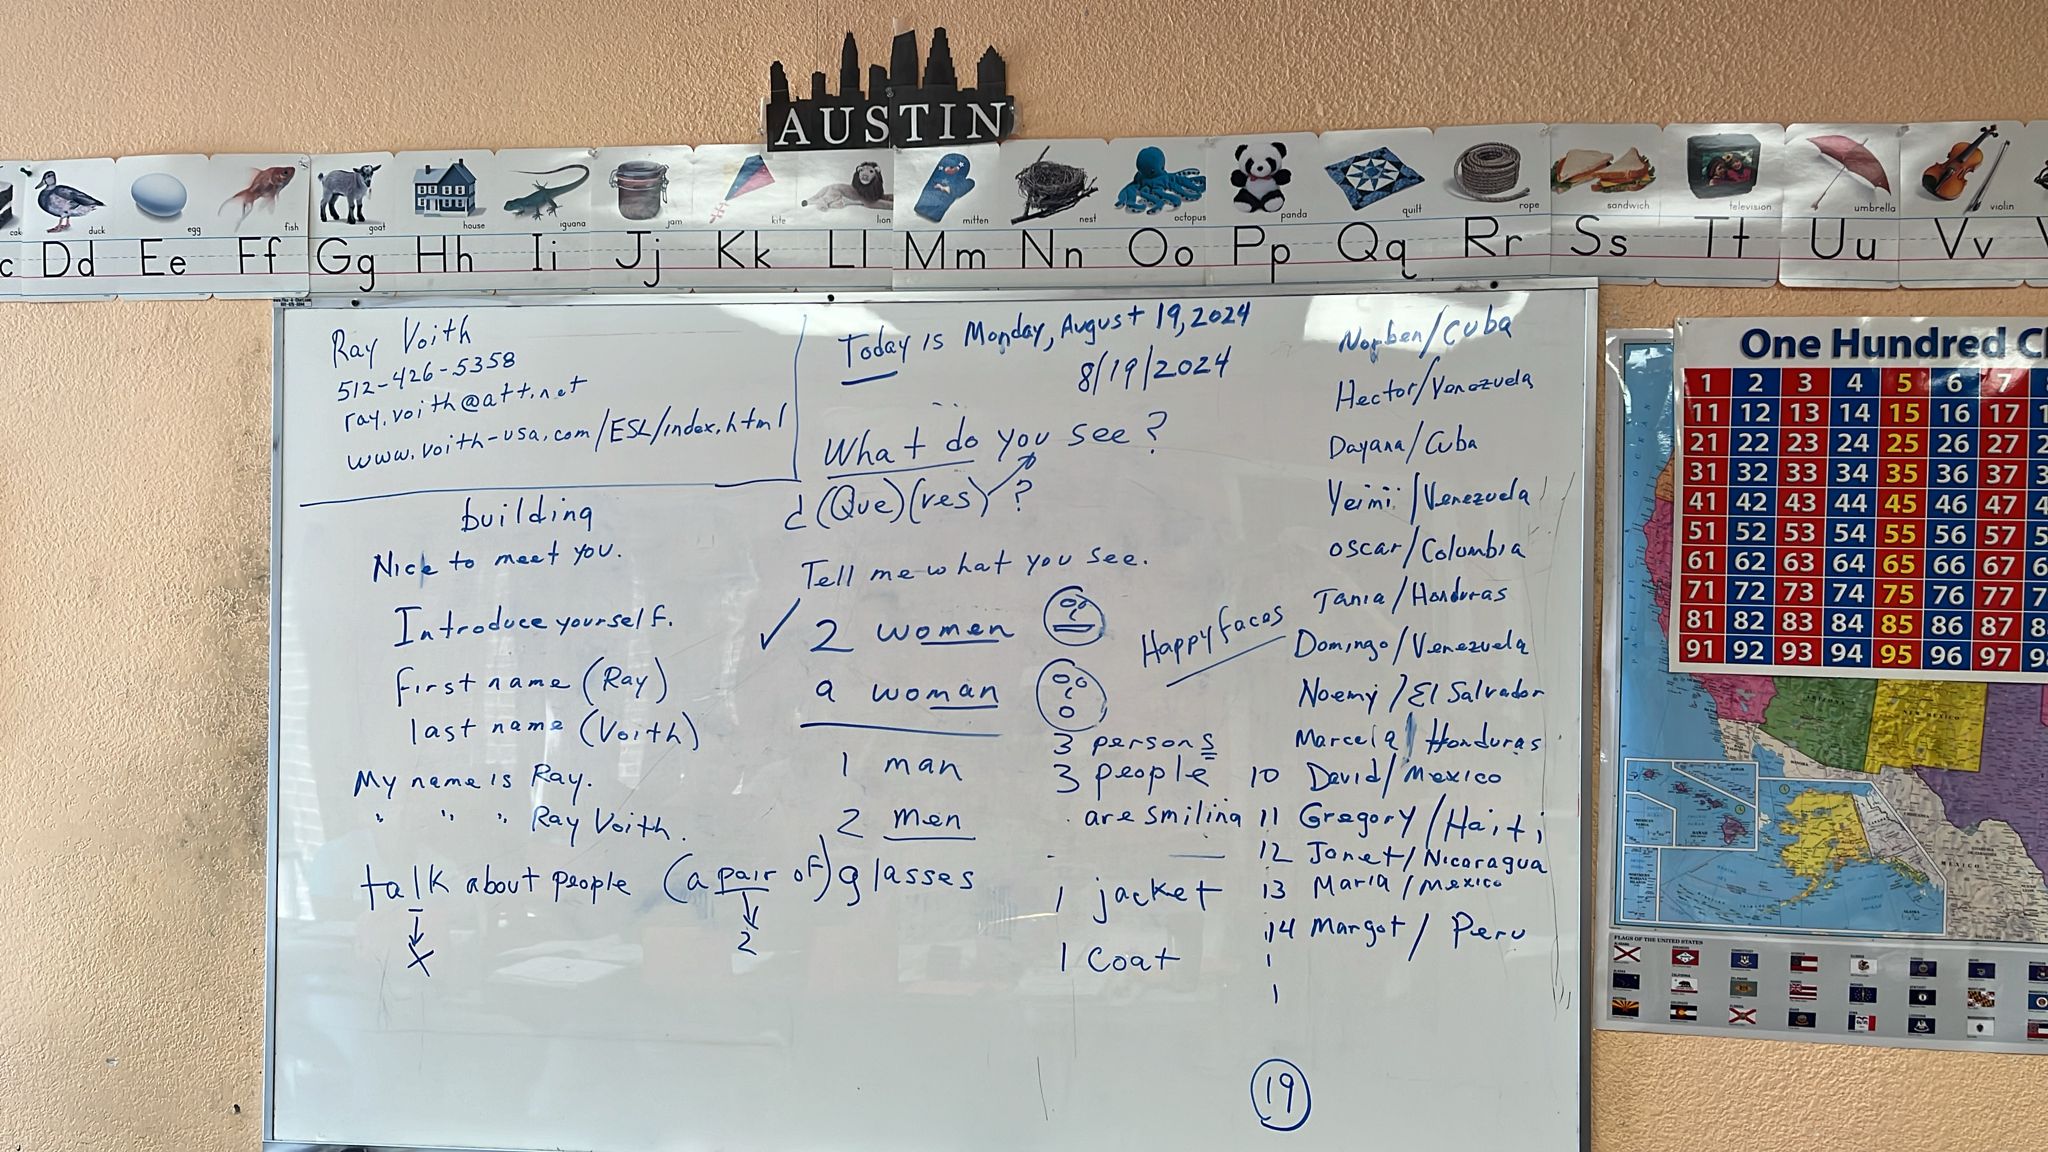 AUSTIN
duck
egg
fish
goat
house
iguana
jam
kite
lion
mitten
nest
octopus
panda
quilt
rope
sandwich
television
umbrella
violin
c Dd Ee Ff Gg Hh Ii Jj Kk Ll Mm Nn Oo Pp Qq Rr Ss Tt Uu Vv
Ray Voith
512-426-5358
ray.voith@att.net
www.voith-usa.com/ESL/index.html
building
Nice to meet you.
Introduce yourself.
first name (Ray)
last name (Voith)
My name is Ray.
" " " Ray Voith.
talk about people (a pair of) glasses
X
2
Today is Monday, August 19, 2024
8/19/2024
What do you see?
¿(Que)(ves)?
Tell me what you see.
✓ 2 women
a woman
1 man
2 men
Happy faces
3 persons
3 people
are smiling
1 jacket
1 coat
Norben/Cuba
Hector/Venezuela
Dayana/Cuba
Yeimi/Venezuela
Oscar/Columbia
Tania/Honduras
Domingo/Venezuela
Noemy/El Salvador
Marcela/Honduras
10 David/Mexico
11 Gregory/Haiti
12 Jonet/Nicaragua
13 Maria/Mexico
14 Margot/Peru
1
1
19
One Hundred Ch
1 2 3 4 5 6 7
11 12 13 14 15 16 17 1
21 22 23 24 25 26 27 2
31 32 33 34 35 36 37 3
41 42 43 44 45 46 47 4
51 52 53 54 55 56 57 5
61 62 63 64 65 66 67 6
71 72 73 74 75 76 77 7
81 82 83 84 85 86 87 8
91 92 93 94 95 96 97 98
ARIZONA
NEW MEXICO
MEXICO
FLAGS OF THE UNITED STATES